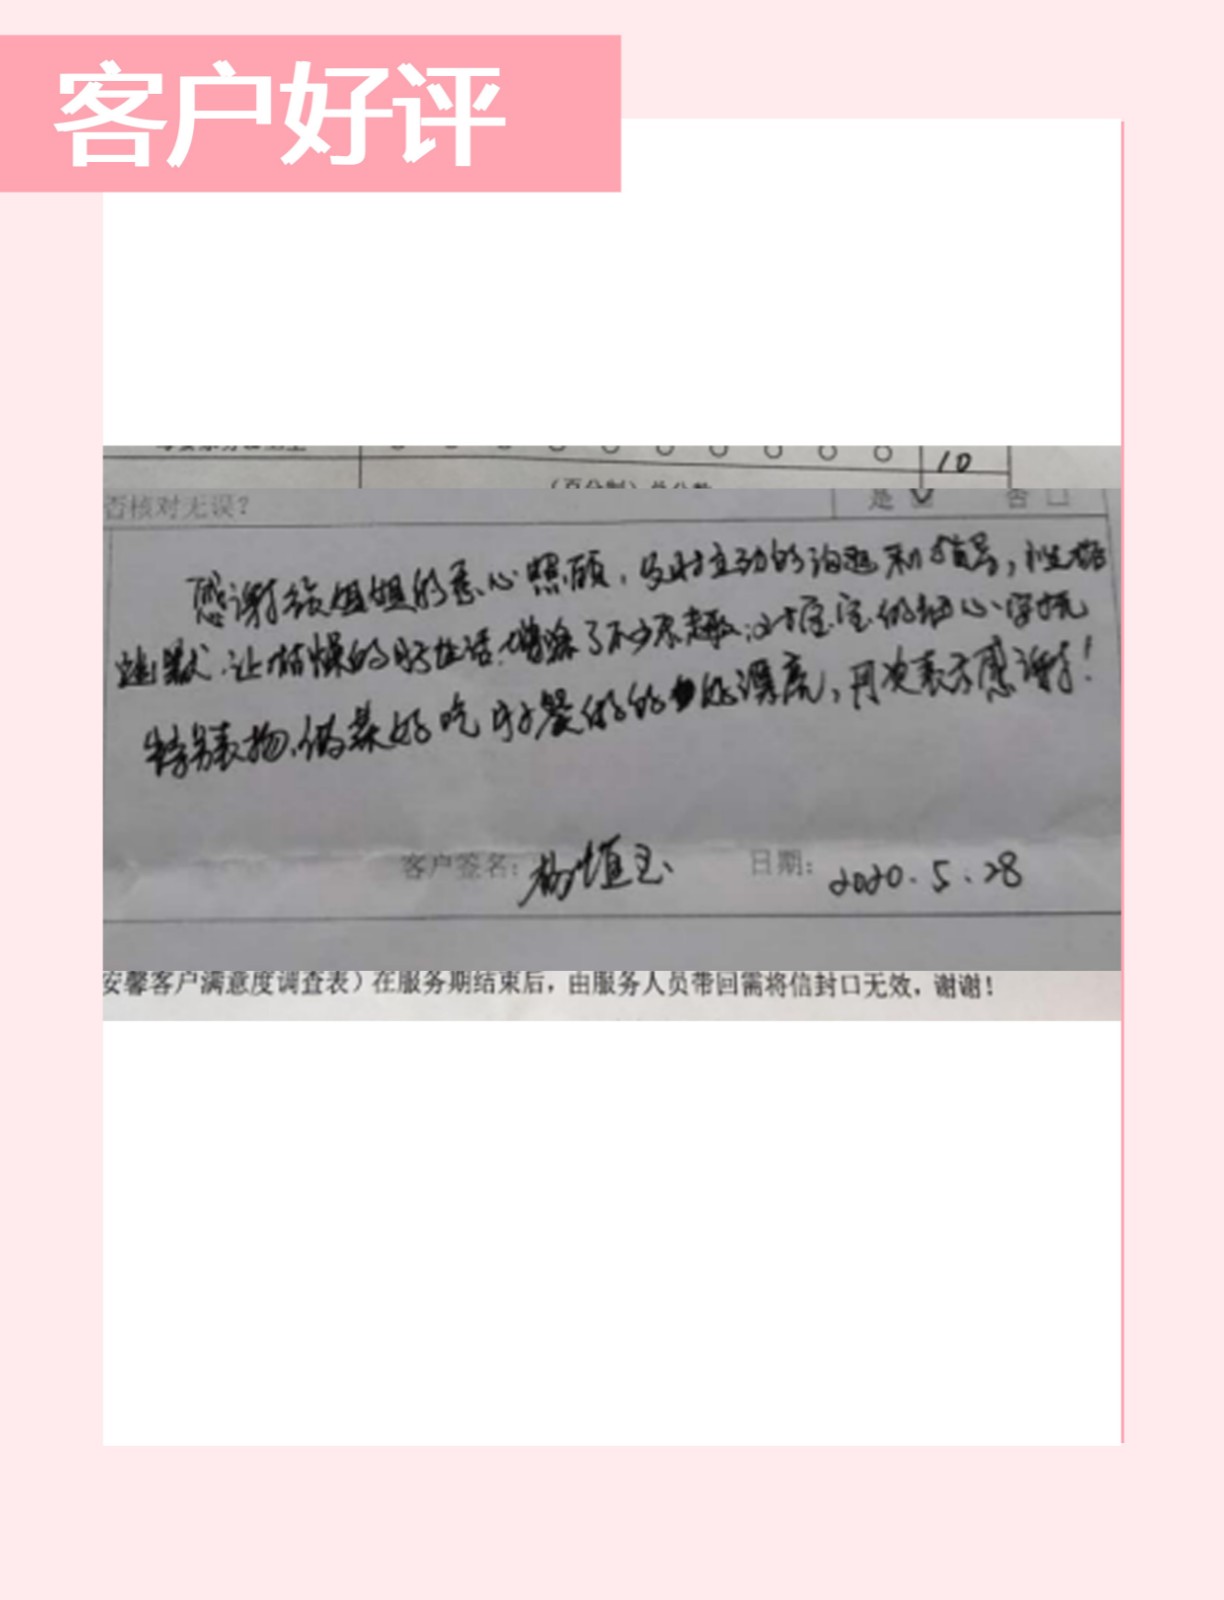 客户好评
10
(百分制)总分数
否核对无误? 是 否
感谢 姐姐的悉心照顾,及时主动的沟通和指导,性格
幽默,让枯燥的月子生活,增添了不少乐趣;对宝宝的细心
特别 ,做菜好吃,月子餐做的 漂亮,再次表示感谢!
客户签名: 日期: 2020.5.28
安馨客户满意度调查表)在服务期结束后,由服务人员带回需将信封口无效,谢谢!